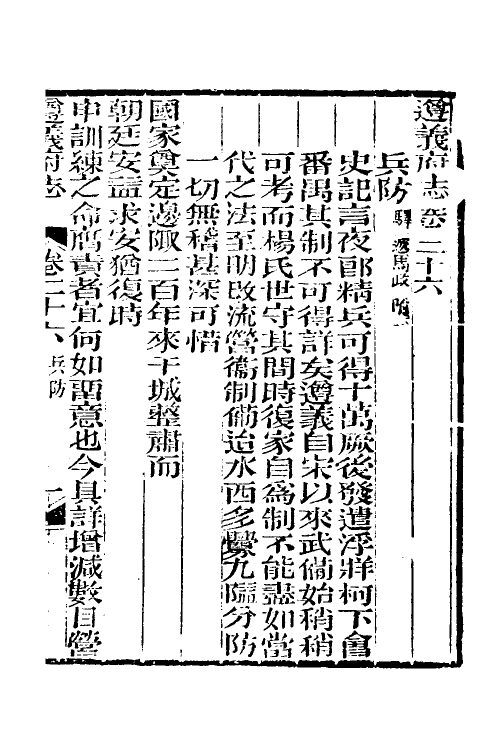 遵義府志卷二十六
兵防 驛遞馬政附
史記言夜郎精兵可得十萬厥後發遣浮牂柯下會
番禺其制不可得詳矣遵義自宋以來武備始稍稍
可考而楊氏世守其間時復家自為制不能盡如當
代之法至明改流營衞制備迨水西多釁九隘分防
一切無稽甚深可惜
國家奠定邊陬二百年來干城整肅而
朝廷安益求安猶復時
申訓練之命膺責者宜何如畱意也今具詳增減數目營
遵義府志 卷二十六 兵防 一